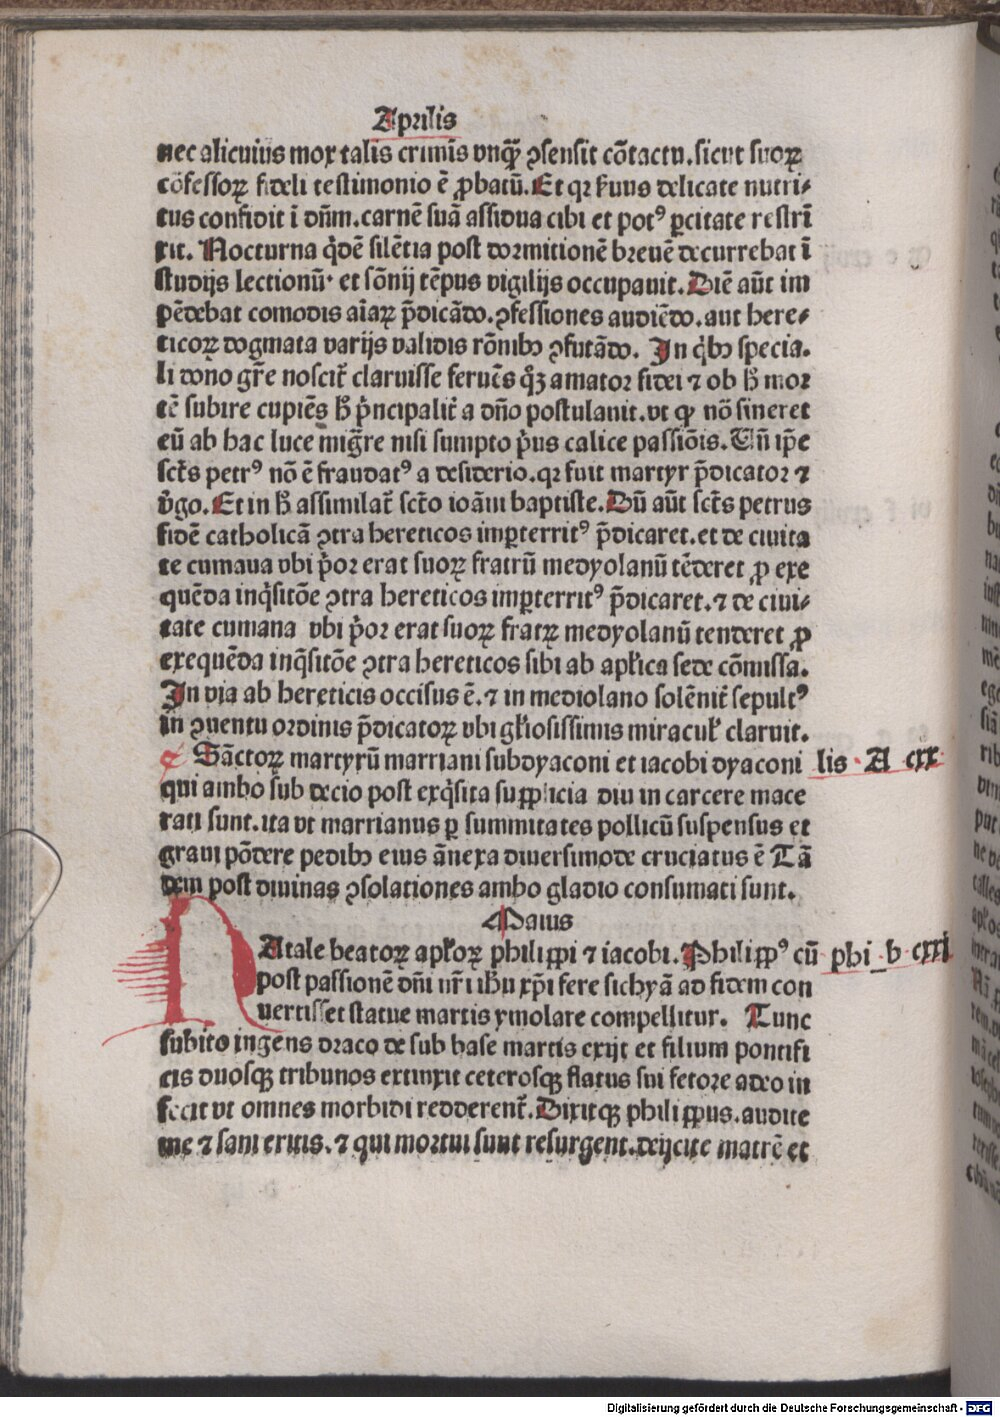 Aprilis
nec alicuius mortalis crimīs vnqꝫ ꝯsensit cōtactu. sicut suoꝝ
cōfessoꝝ fideli testimonio ē ꝓbatū. Et qꝛ delicate nutri⸗
tus confidit ī dn̄m. carnē suā assidua cibi et potꝰ ꝑcitate restrī
xit. Nocturna q̇dē silētia post dormitionē breuē decurrebat ī
studijs lectionū· et sōnij tēpus vigilijs occupauit. Diē aūt im
pēdebat comodis aīaꝝ p̄dicādo. ꝯfessiones audiēdo. aut here⸗
ticoꝝ dogmata varijs validis rōnibꝫ ꝯfutādo. In q̇bꝫ specia.
li dono gr̄e noscit̄ claruisse feruēs qꝫ amator fidei ⁊ ob h̄ mor
tē subire cupiēs h̄ pͥncipalit̄ a dn̄o postulauit. vt nō sineret
eū ab hac luce mig̅re nisi sumpto pͥus calice passiōis. Vn̄ ip̄e
sct̄s petrꝰ nō ē fraudatꝰ a desiderio. qꝛ fuit martyr p̄dicator ⁊
v̓go. Et in h̄ assimilat̄ sct̄o ioāni baptiste. Dū aūt sct̄s petrus
fidē catholicā ꝯtra hereticos imꝑterritꝰ p̄dicaret. et de ciuita
te cumaua vbi pͥor erat suoꝝ fratrū medyolanū tēderet ꝓ exe
quēda inq̇sitōe ꝯtra hereticos imꝑterritꝰ p̄dicaret. ⁊ de ciui⸗
tate cumana vbi pͥor erat suoꝝ fratꝝ medyolanū tenderet ꝓ
exequēda inq̇sitōe ꝯtra hereticos sibi ab apl̓ica sede cōmissa.
In via ab hereticis occisus ē. ⁊ in mediolano solēnit̄ sepultꝰ
in ꝯuentu ordinis p̄dicatoꝝ vbi gl̓iosissimis miracul̓ claruit.
Sāctoꝝ martyrū marriani subdyaconi et iacobi dyaconi lis · A cxx
qui ambo sub decio post exq̇sita supplicia diu in carcere mace
rati sunt. ita vt marrianus ꝑ summitates pollicū suspensus et
graui pōdere pedibꝫ eius ānexa diuersimode cruciatus ē Tā
dem post diuinas ꝯsolationes ambo gladio consumati sunt.
Maius
NAtale beatoꝝ apl̓oꝝ philippi ⁊ iacobi. Philippꝰ cū phi_ b cxxi
post passionē dn̄i nr̄i ihu xp̄i fere sichyā ad fidem con
uertisset statue martis ymolare compellitur. Tunc
subito ingens draco de sub base martis exijt et filium pontifi
cis duosqꝫ tribunos extinxit ceterosqꝫ flatus sui fetore adeo in
fecit vt omnes morbidi redderent̄. Dixitqꝫ philippus. audite
me ⁊ sani eritis. ⁊ qui mortui sunt resurgent. deijcite matrē et
Digitalisierung gefördert durch die Deutsche Forschungsgemeinschaft - DFG